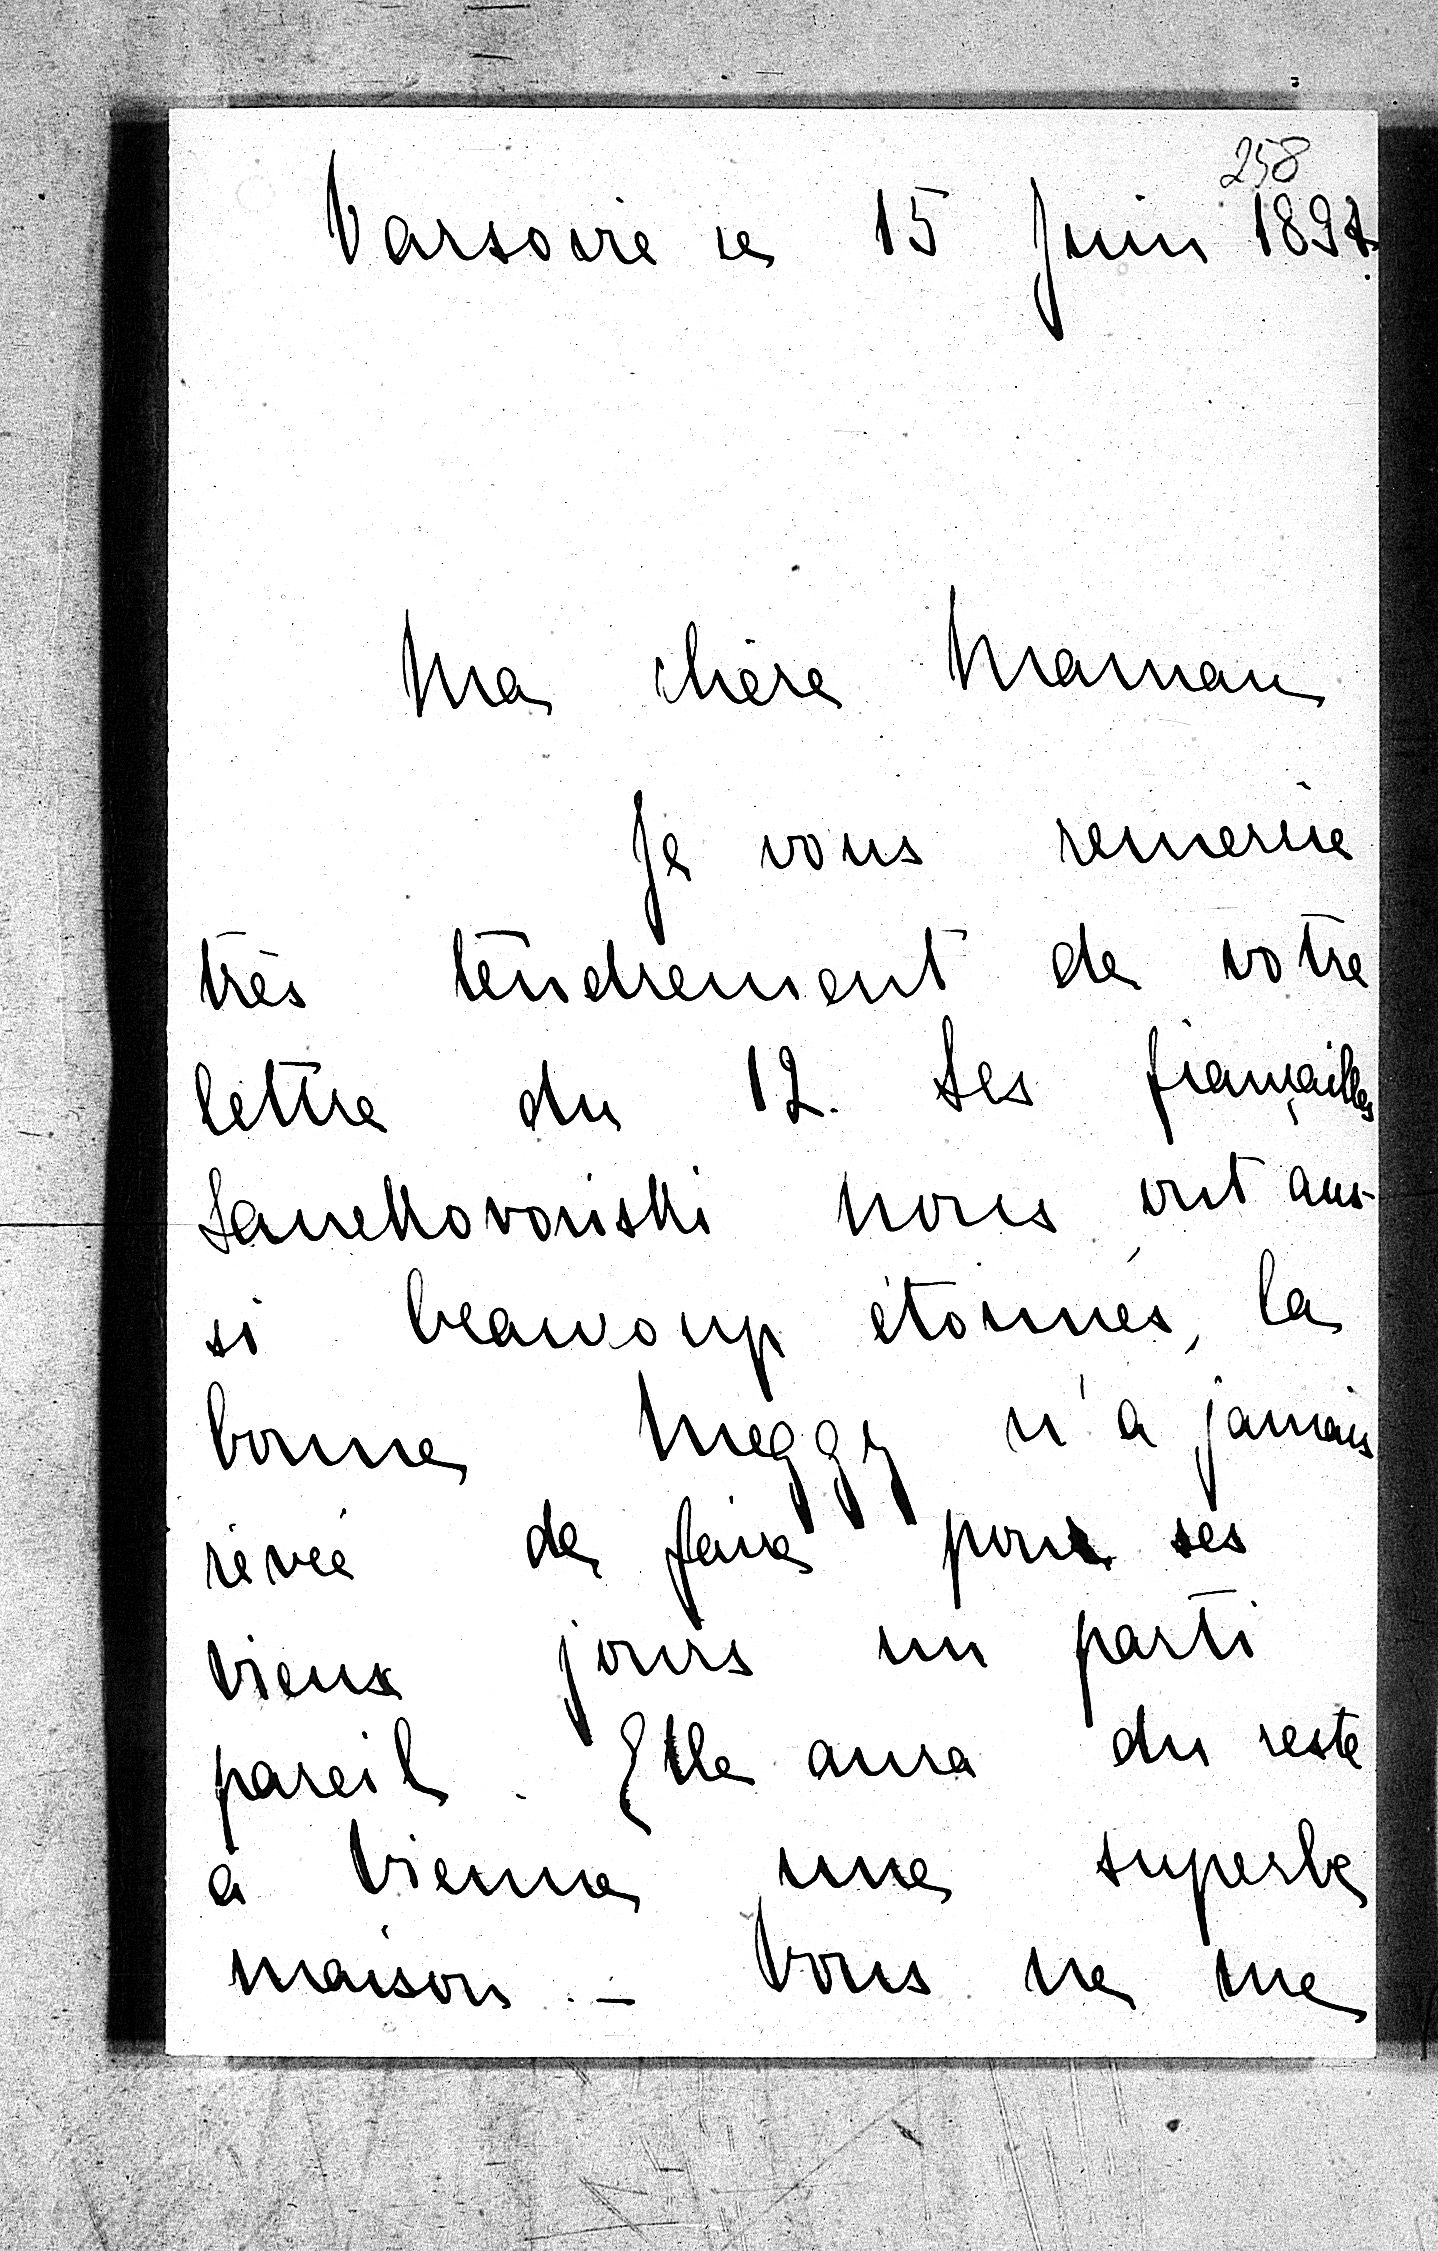 258
Varsovie le 15 Juin 1897.
Ma chère Maman
Je vous remercie
très tendrement de votre
lettre du 12. Les fiançailles
nous ont aus-
si beaucoup étonnés, la
bonne Meggy n'a jamais
rêvé de faire pour ses
vieux jours un parti
pareil. Elle aura du reste
à Vienne une superbe
maison. – Vous ne me